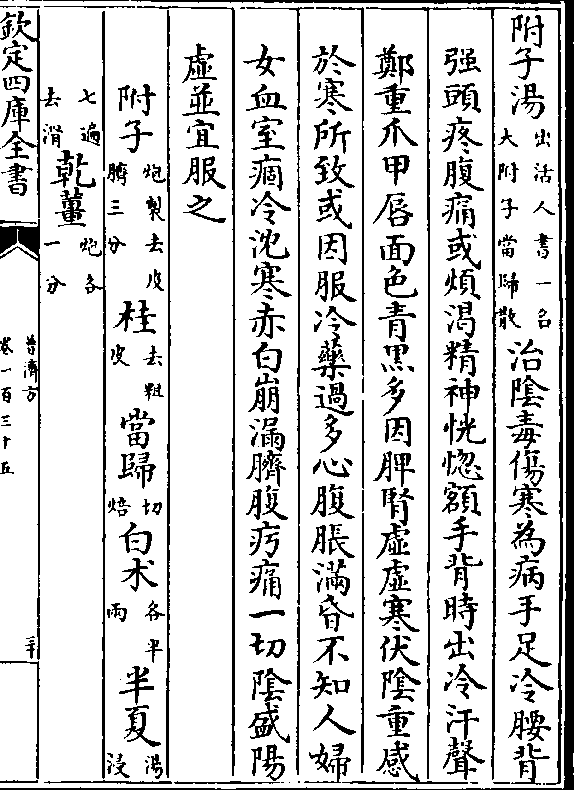 附子湯出活人書一名大附子當歸散治陰毒傷寒為病手足冷腰背
强頭疼腹痛或煩渴精神恍惚額手背時出冷汗聲
鄭重爪甲唇面色青黑多因脾腎虚虚寒伏陰重感
於寒所致或因服冷藥過多心腹脹滿昏不知人婦
女血室痼冷沈寒赤白崩漏臍腹㽱痛一切陰盛陽
虛並宜服之
附子炮製去皮臍三分桂去粗皮當歸切焙白术各半兩半夏湯浸
七遍去滑乾薑炮各一分
欽定四庫全書
普濟方
卷一百三十五
三十